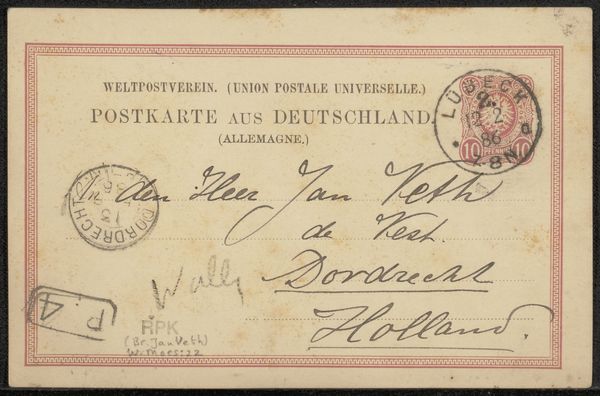 WELTPOSTVEREIN. (UNION POSTALE UNIVERSELLE.)
POSTKARTE AUS DEUTSCHLAND.
(ALLEMAGNE.)
LÜBECK
2.
12 2
86
7-8N
a
10 PFENNIG 10
DORDRECHT
13
den Heer Jan Veth
de Vest.
Dordrecht
Holland.
Wally
P. 4
RPK
(Br. Jan Veth)
W. Moes: 22